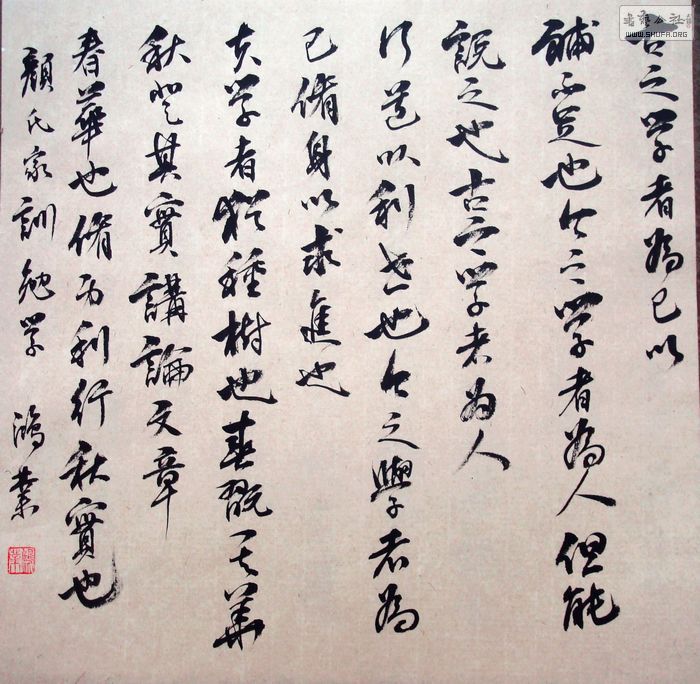 古之学者為己以
補不足也今之学者為人但能
説之也古之学者为人
行道以利世也今之學者為
己脩身以求進也
夫学者犹種樹也春翫其華
秋登其實講論文章
春華也脩身利行秋實也
顏氏家訓勉学 鴻業
WWW.SHUFA.ORG